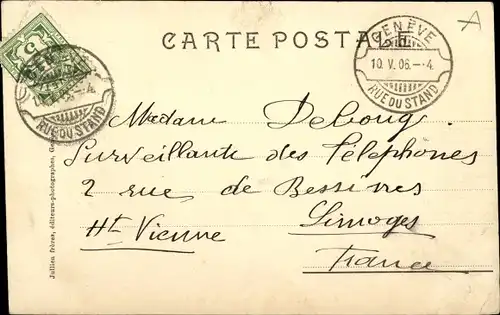 A
CARTE POSTALE
GENÈVE
10. V. 06. – 4
RUE DU STAND
5
RUE DU STAND
Madame Deboug
Surveillante des Téléphones
2 rue de Bessines
Limoges
Ht Vienne
France
Jullien frères, éditeurs-photographes,